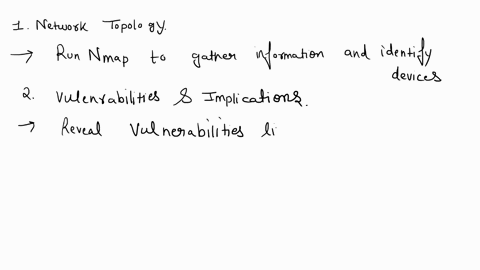 1. Network Topology.
→ Run Nmap to gather information and identify
devices
2. Vulenrabilities & Implications.
→ Reveal Vulnerabilities li